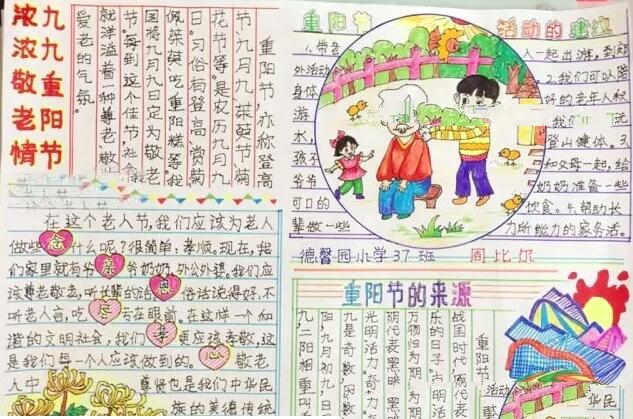 九九重阳节
浓浓敬老情
重阳节,亦称登高
节、九月九、茱萸节、菊
花节等。是农历九月九
日。习俗有登高、赏菊、
佩茱萸、吃重阳糕等。我
国将九月九日定为敬老
节。每到这个佳节,社会
就洋溢着一种尊老敬老
爱老的气氛。
在这个老人节,我们应该为老人
做些什么呢?很简单:孝顺。现在,我
们家里就有爷爷奶奶,外公外婆,我们应
该尊老敬老,听长辈的话。恩俗话说得好,不
听老人言,吃亏在眼前。在这样一个和
谐的文明社会,我们更应该孝敬,这
是我们每一个人应该做到的。心敬老
人中 尊贤也是我们中华民
族的美德传统
重阳节 活动的建议
1.带老 人一起出游,到郊
外活动 2.我们可以陪
身体 好的老年人和
游 我们 玩
水, 登山健体。3.
孩子 和父母一起,给
爷爷 奶奶准备一些
可口的 饮食。4.帮助长
辈做一些 力所能力的家务活。
德馨园小学37班 周比尔
重阳节的来源
重阳节
战国时代,阴
乐的日子。古
万物归为阴
阴代表黑暗,
光明活力,奇
九是奇数,因
九,二阳相重,叫
活动
华民